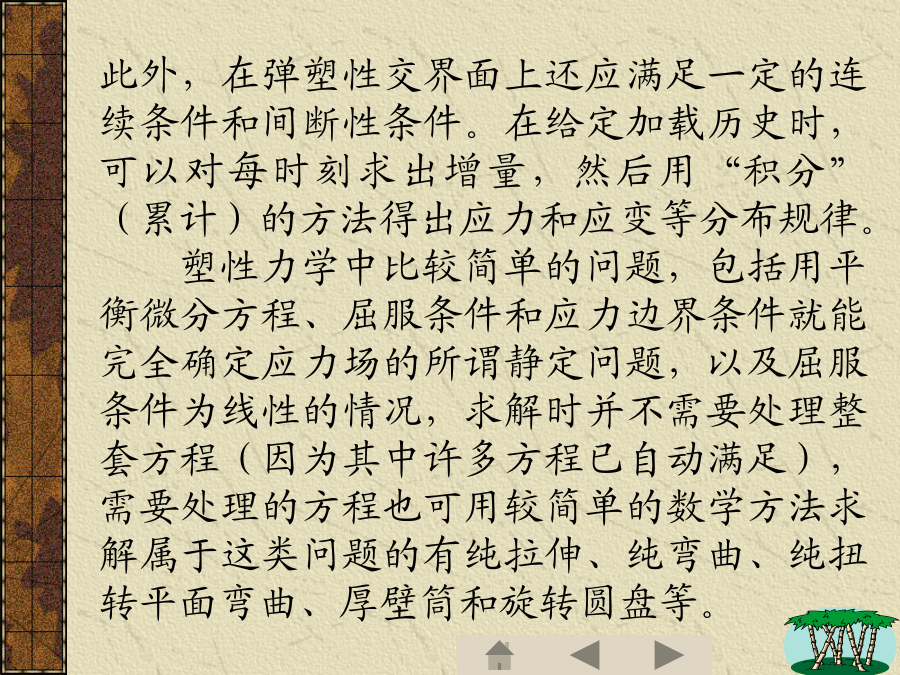 此外，在弹塑性交界面上还应满足一定的连
续条件和间断性条件。在给定加载历史时，
可以对每时刻求出增量，然后用“积分”
（累计）的方法得出应力和应变等分布规律。
塑性力学中比较简单的问题，包括用平
衡微分方程、屈服条件和应力边界条件就能
完全确定应力场的所谓静定问题，以及屈服
条件为线性的情况，求解时并不需要处理整
套方程（因为其中许多方程已自动满足），
需要处理的方程也可用较简单的数学方法求
解属于这类问题的有纯拉伸、纯弯曲、纯扭
转平面弯曲、厚壁筒和旋转圆盘等。